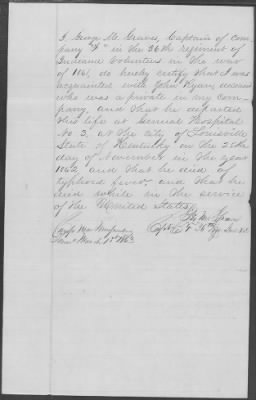 I, George M. Graves, Captain of Com-
pany "F" in the 36th regiment of
Indiana Volunteers in the war
of 1861, do hereby certify that I was
acquainted with John Ryan, deceased
who was a private in my com-
pany, and that he departed
this life at General Hospital
No 3, at the city of Louisville
State of Kentucky on the 25th
day of November in the year
1862, and that he died of
typhoid fever, and that he
died while in the service
of the United States
Geo M Graves
Camp Near Murfreesboro Capt Co F 36th Reg Ind Vol
Tenn March 1st 1863